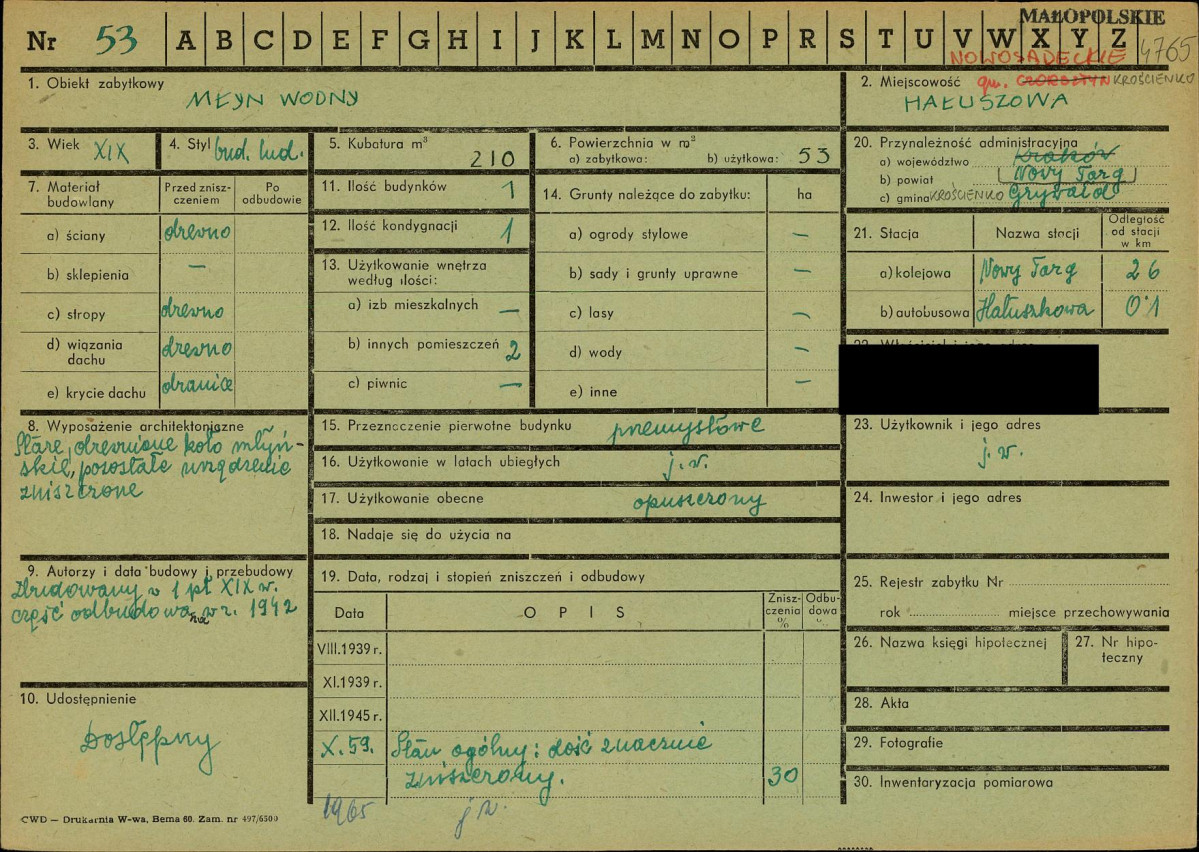 MAŁOPOLSKIE
Nr 53 A B C D E F G H I J K L M N O P R S T U V W X Y Z
NOWOSĄDECKIE 4765
1. Obiekt zabytkowy
MŁYN WODNY
2. Miejscowość gm. CZORSZTYN KROŚCIENKO
HAŁUSZOWA
3. Wiek XIX
4. Styl bud. lud.
5. Kubatura m³ 210
6. Powierzchnia w m²
a) zabytkowa: b) użytkowa: 53
7. Materiał budowlany
Przed zniszczeniem
Po odbudowie
a) ściany drewno
b) sklepienia —
c) stropy drewno
d) wiązania dachu drewno
e) krycie dachu dranice
8. Wyposażenie architektoniczne
Stare, drewniane koło młyń-
skie, pozostałe urządzenie
zniszczone
9. Autorzy i data budowy i przebudowy
Zbudowany w 1 pł XIX w.
część odbudowana w r. 1942
10. Udostępnienie
Dostępny
11. Ilość budynków 1
12. Ilość kondygnacji 1
13. Użytkowanie wnętrza
według ilości:
a) izb mieszkalnych —
b) innych pomieszczeń 2
c) piwnic —
14. Grunty należące do zabytku: ha
a) ogrody stylowe —
b) sady i grunty uprawne —
c) lasy —
d) wody —
e) inne —
15. Przeznaczenie pierwotne budynku przemysłowe
16. Użytkowanie w latach ubiegłych j. w.
17. Użytkowanie obecne opuszczony
18. Nadaje się do użycia na
19. Data, rodzaj i stopień zniszczeń i odbudowy
Data OPIS Zniszczenia % Odbudowa %
VIII.1939 r.
XI.1939 r.
XII.1945 r.
X. 59. Stan ogólny: dość znacznie
zniszczony. 30
1965 j w.
20. Przynależność administracyjna
a) województwo Kraków
b) powiat Nowy Targ
c) gmina KROŚCIENKO Grywałd
21. Stacja Nazwa stacji Odległość od stacji w km
a) kolejowa Nowy Targ 26
b) autobusowa Hałuszkowa 0'1
23. Użytkownik i jego adres
j. w.
24. Inwestor i jego adres
25. Rejestr zabytku Nr
rok miejsce przechowywania
26. Nazwa księgi hipotecznej
27. Nr hipo-
teczny
28. Akta
29. Fotografie
30. Inwentaryzacja pomiarowa
CWD — Drukarnia W-wa, Bema 60. Zam. nr 497/6500